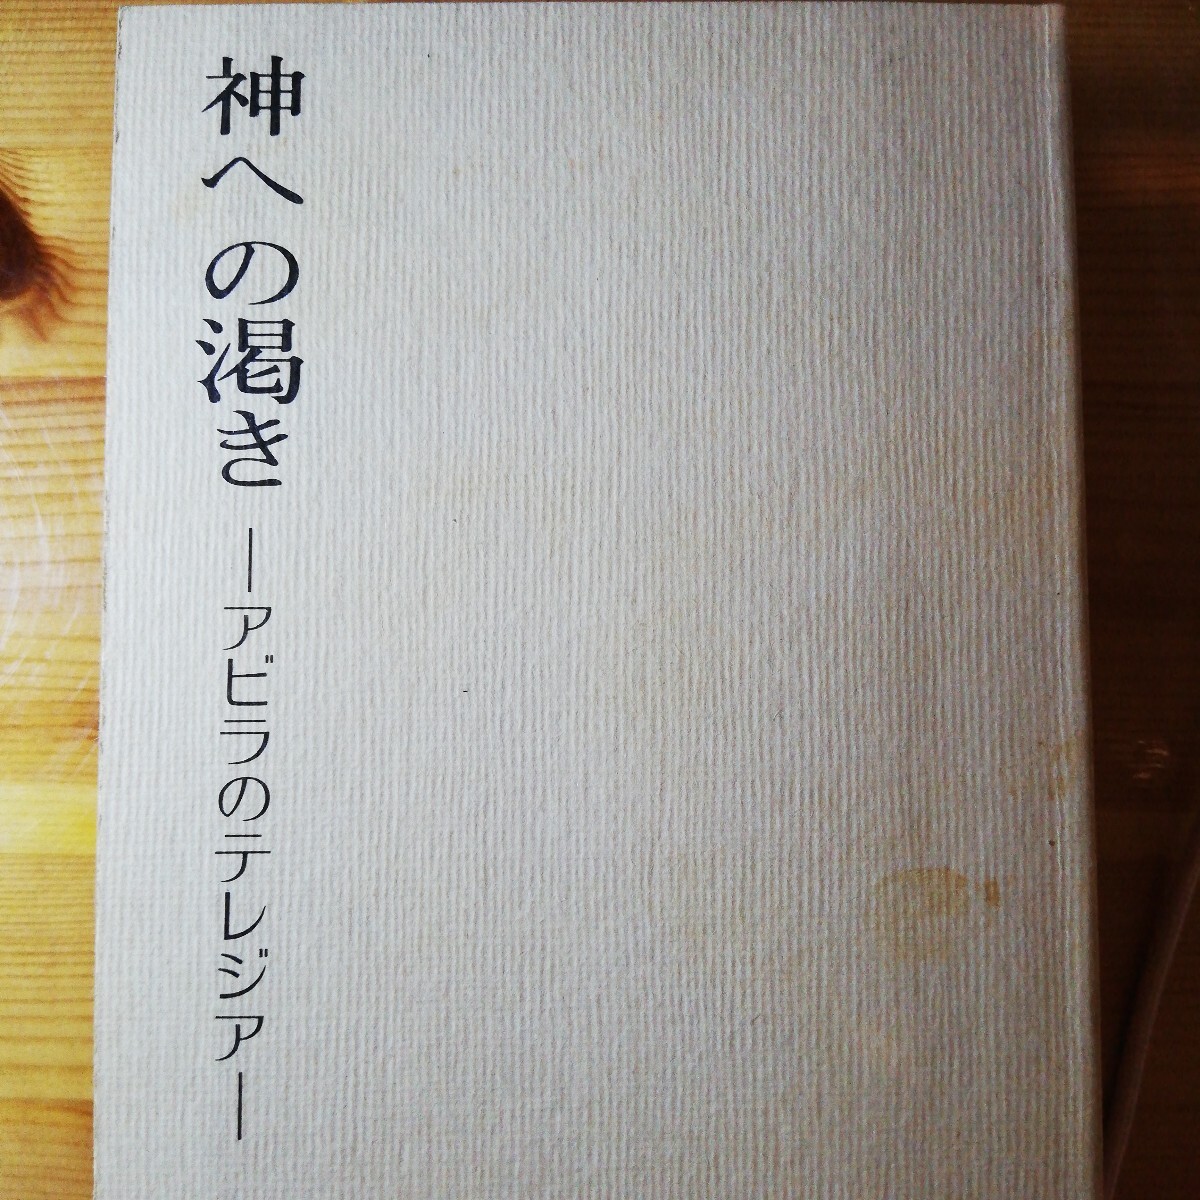 神への渇き―アビラのテレジア―